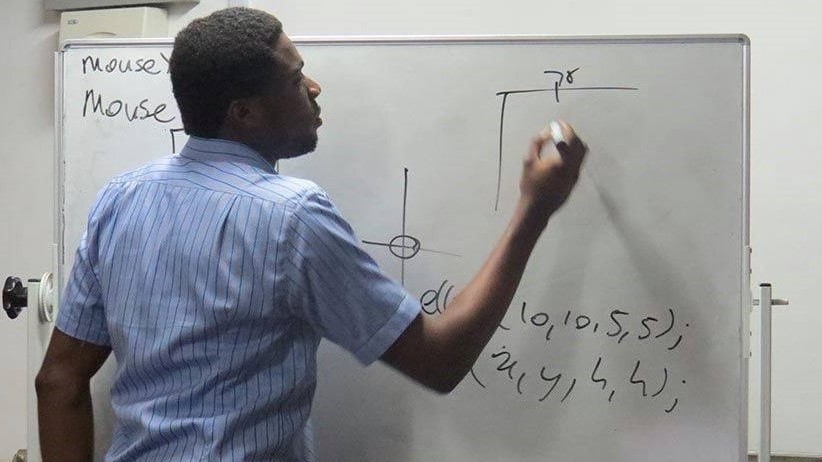 mouseY
Mouse
(10,10,5,5);
(x,y,h,h);